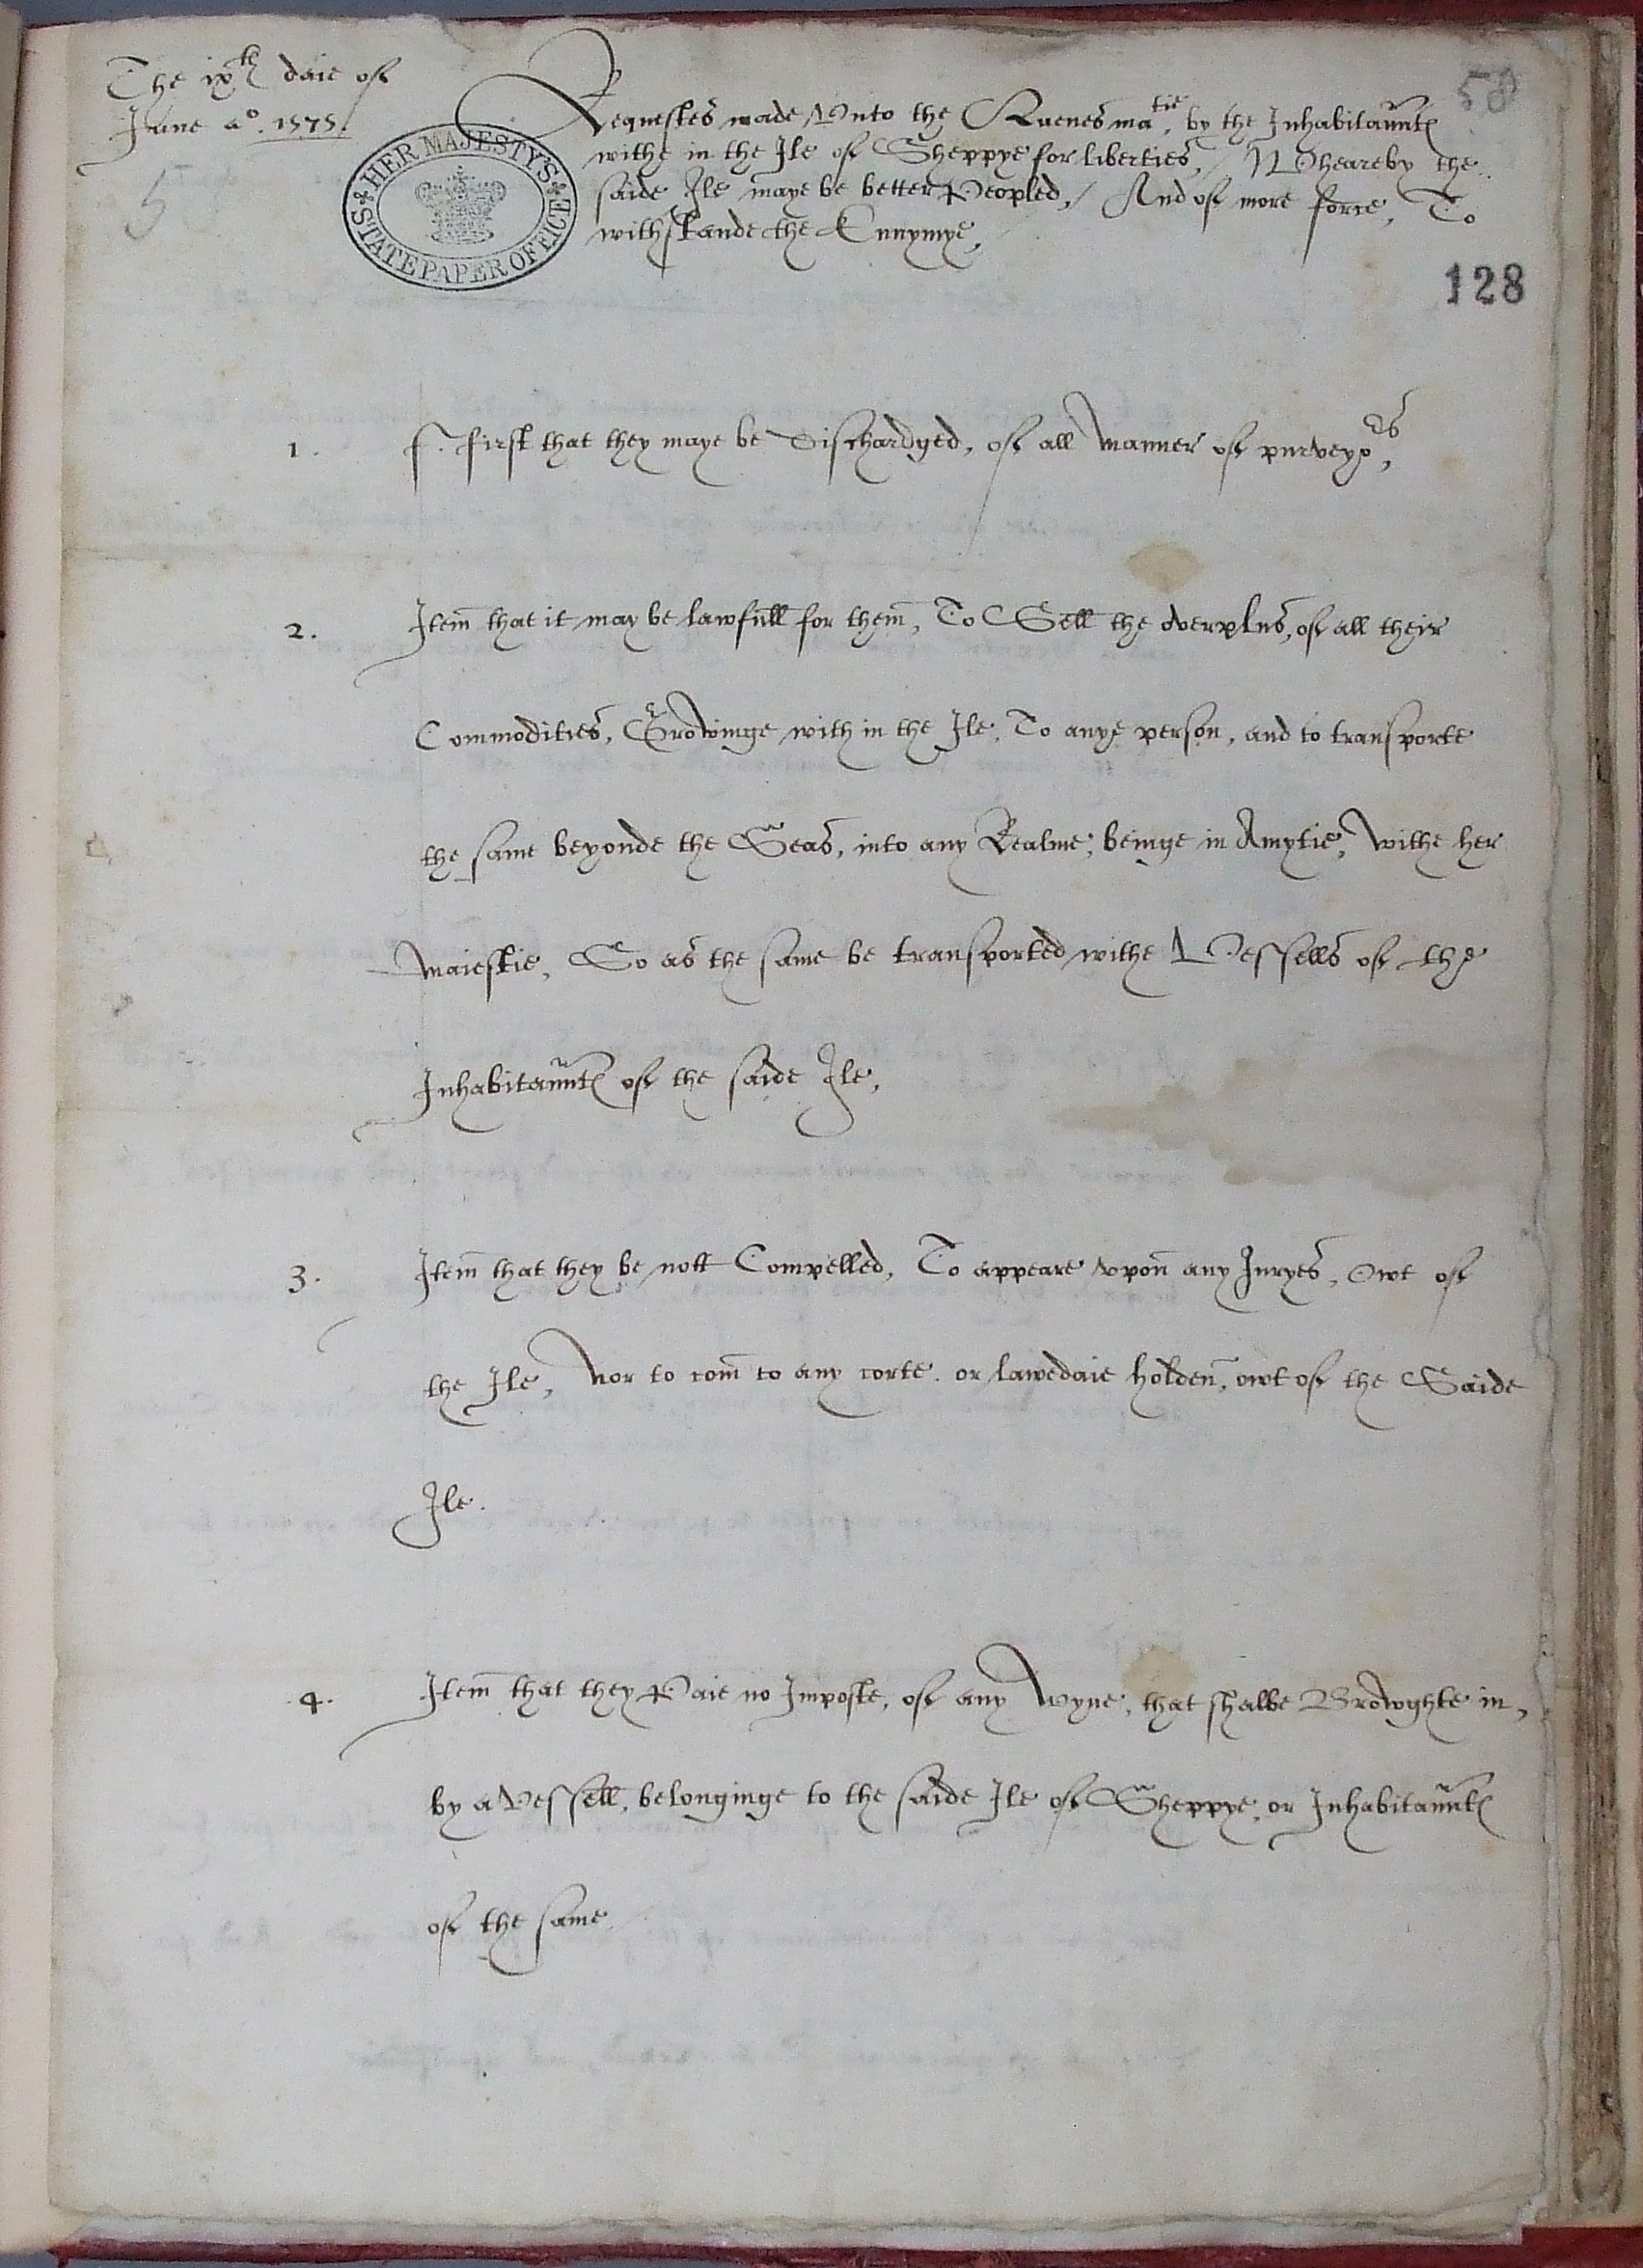 The ixth daie of
June ao. 1575.
5
HER MAJESTY'S
STATE PAPER OFFICE
58
Requestes made Vnto the Quenes matie, by the Inhabitauntes
withe in the Ile of Sheppye for liberties, / Wheareby the
saide Ile maye be better Peopled, / And of more force, To
withstande the Ennymye,
128
1. ff. first that they maye be Dischardged, of all manner of purveyors,
2. Item that it may be lawfull for them, To Sell the overplus, of all their
Commodities, Growinge with in the Ile, To anye person, and to transporte
the same beyonde the Seas, into any Realme, beinge in Amytie, withe her
maiestie, So as the same be transported withe Vessells of the
Inhabitauntes of the saide Ile,
3. Item that they be nott Compelled, To appeare vpon any Juryes, Owt of
the Ile, nor to com to any corte. or lawedaie holden, owt of the Saide
Ile.
4. Item that they Paie no Imposte, of any wyne, that shalbe Browghte in,
by a Vessell, belonginge to the saide Ile of Sheppye, or Inhabitauntes
of the same